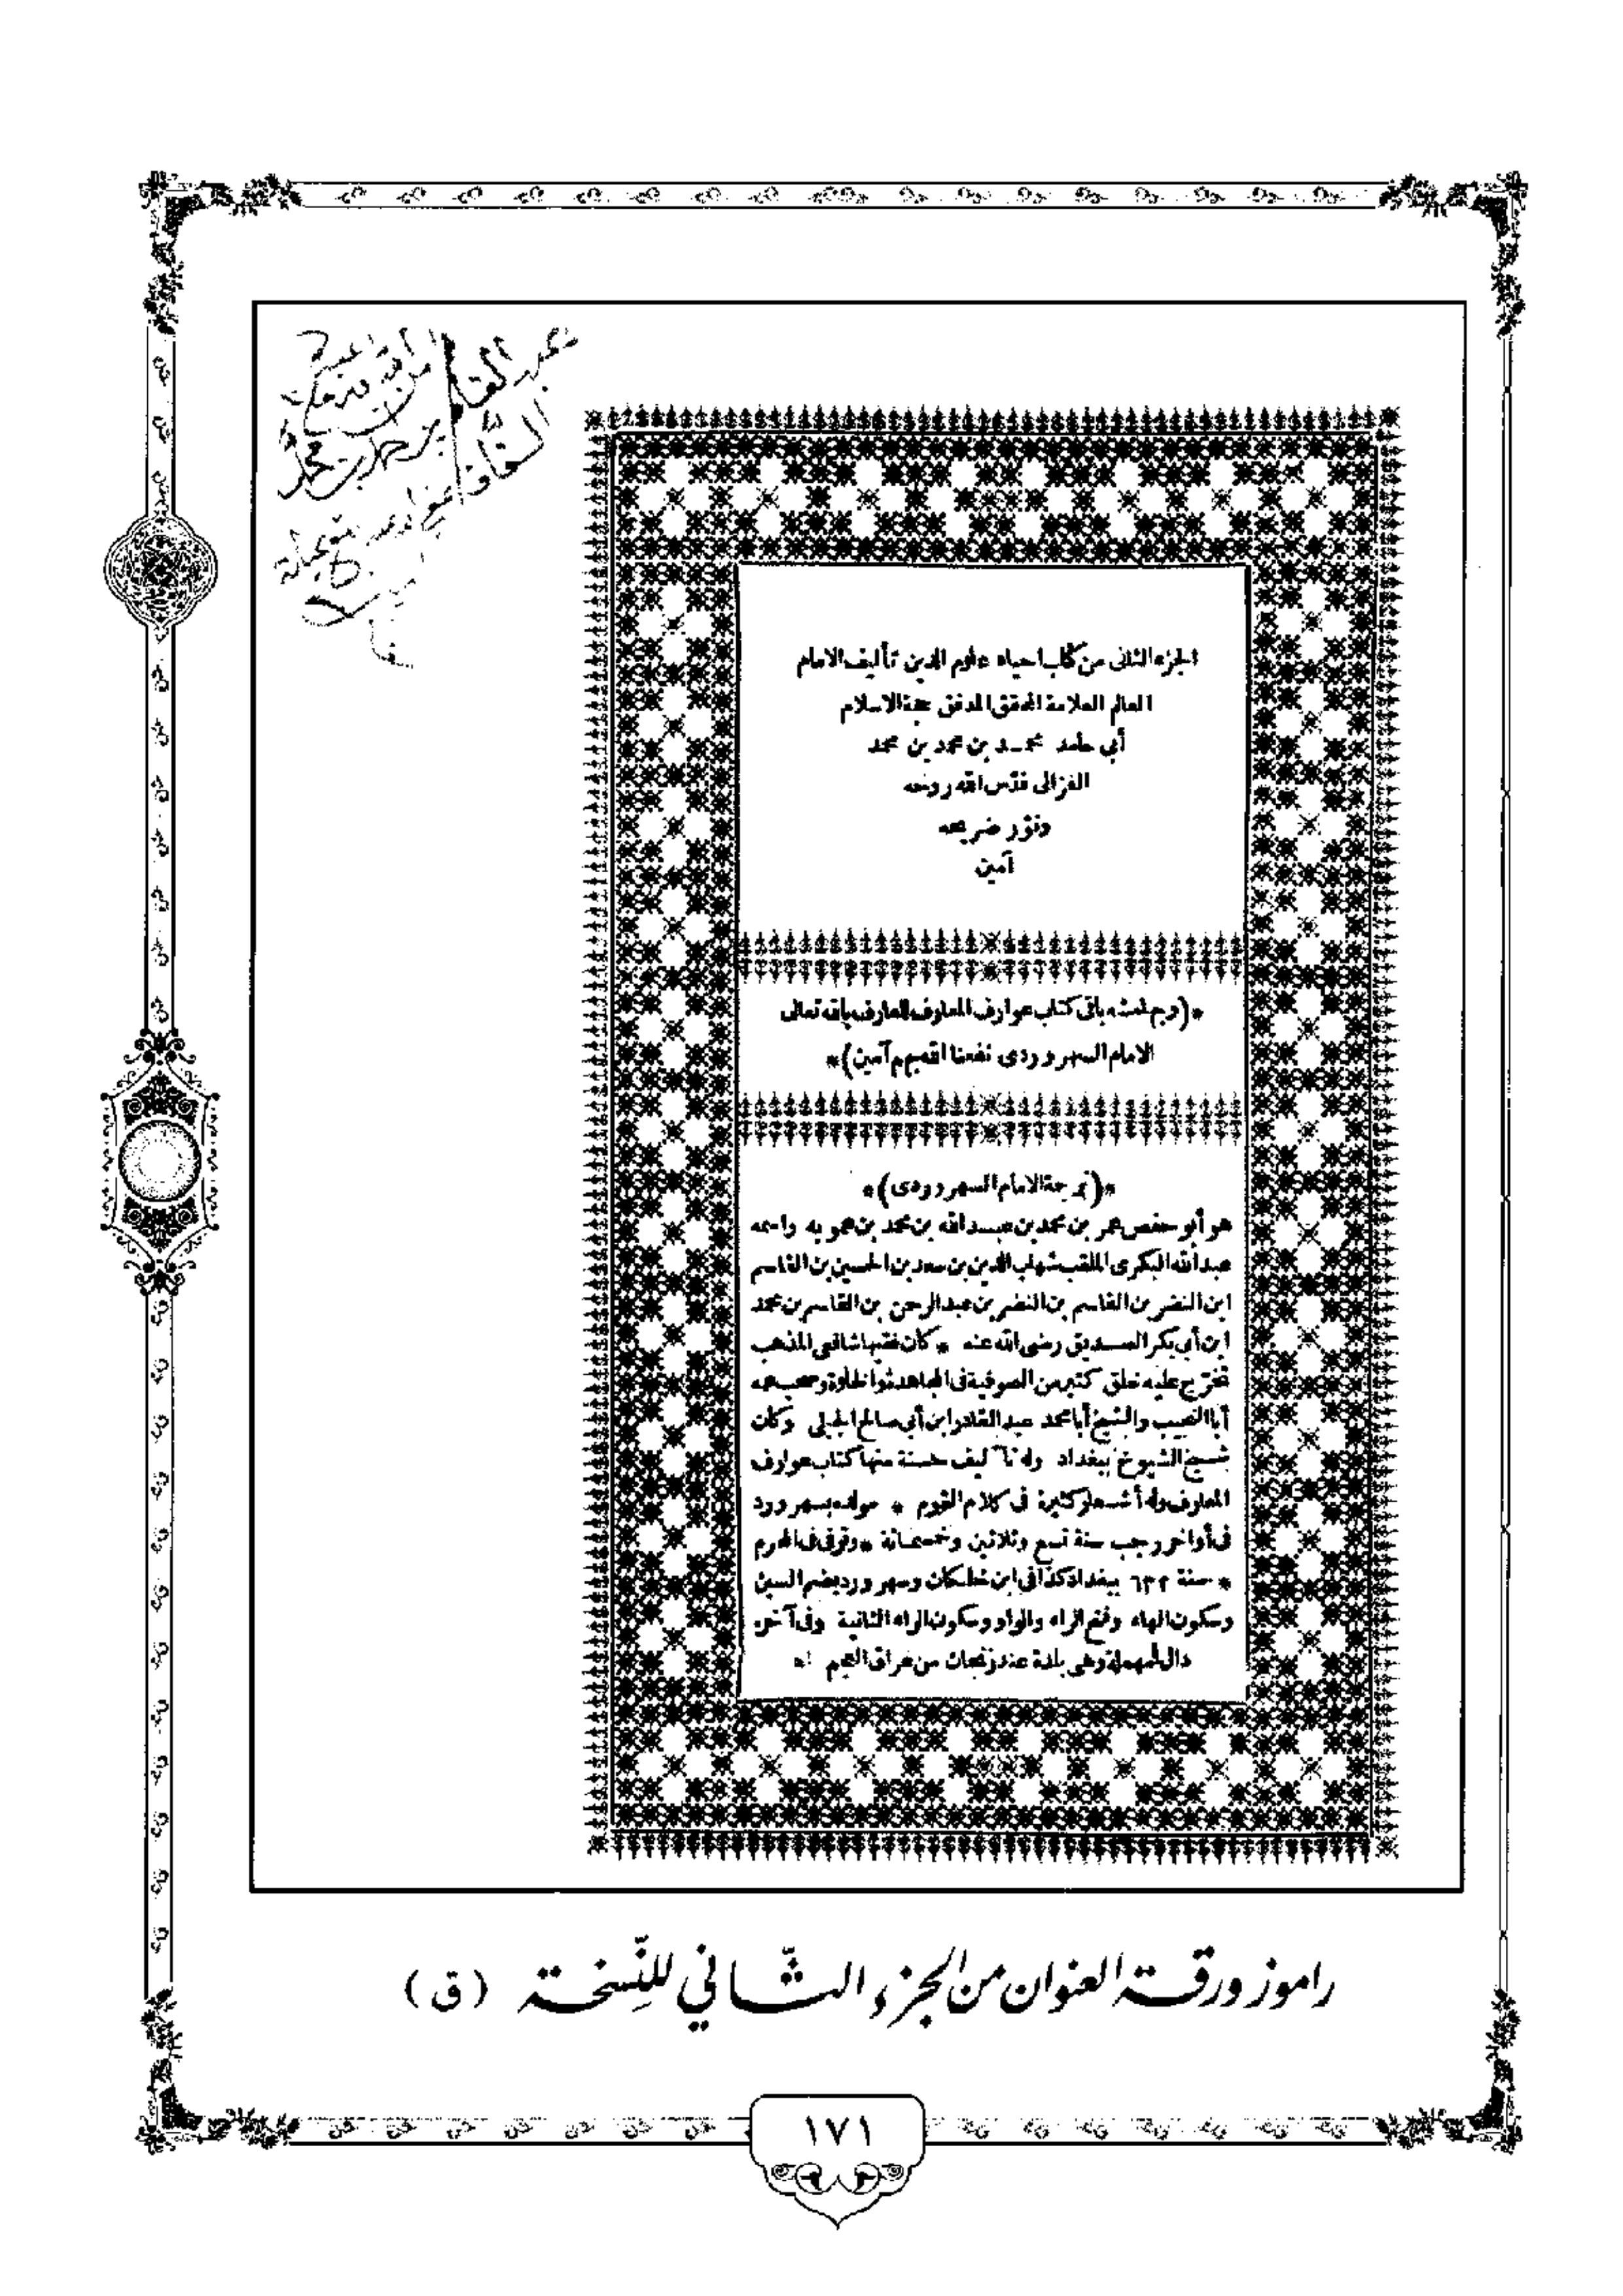 الجزء الثاني من كتاب احياء علوم الدين تأليف الامام
العالم العلامة المحقق المدقق حجة الاسلام
أبي حامد محمد بن محمد بن محمد
الغزالى قدّس الله روحه
ونوّر ضريحه
آمين
*(وبهامشه باقى كتاب عوارف المعارف للعارف بالله تعالى
الامام السهروردى نفعنا الله بهم آمين)*
*(ترجمة الامام السهروردى)*
هو أبو حفص عمر بن محمد بن عبد الله بن محمد بن عمويه واسمه
عبد الله البكرى الملقب شهاب الدين بن سعد بن الحسين بن القاسم
ابن النضر بن القاسم بن النضر بن عبد الرحمن بن القاسم بن محمد
ابن أبي بكر الصديق رضى الله عنه * كان فقيها شافعى المذهب
تخرّج عليه خلق كثير من الصوفية فى المجاهدة والخلوة وصحب عمه
أبا النجيب والشيخ أبا محمد عبد القادر ابن أبى صالح الجيلى وكان
شيخ الشيوخ ببغداد وله تآليف حسنة منها كتاب عوارف
المعارف وله أشعار كثيرة فى كلام القوم * مولده بسهرورد
فى أواخر رجب سنة تسع وثلاثين وخمسمائة * وتوفى فى المحرم
* سنة ٦٣٢ ببغداد كذا فى ابن خلكان وسهرورد بضم السين
وسكون الهاء وفتح الراء والواو وسكون الراء الثانية وفى آخره
دال مهملة وهى بلدة عند زنجان من عراق العجم اه
راموز ورقة العنوان من الجزء الثّاني للنّسخة (ق)
١٧١